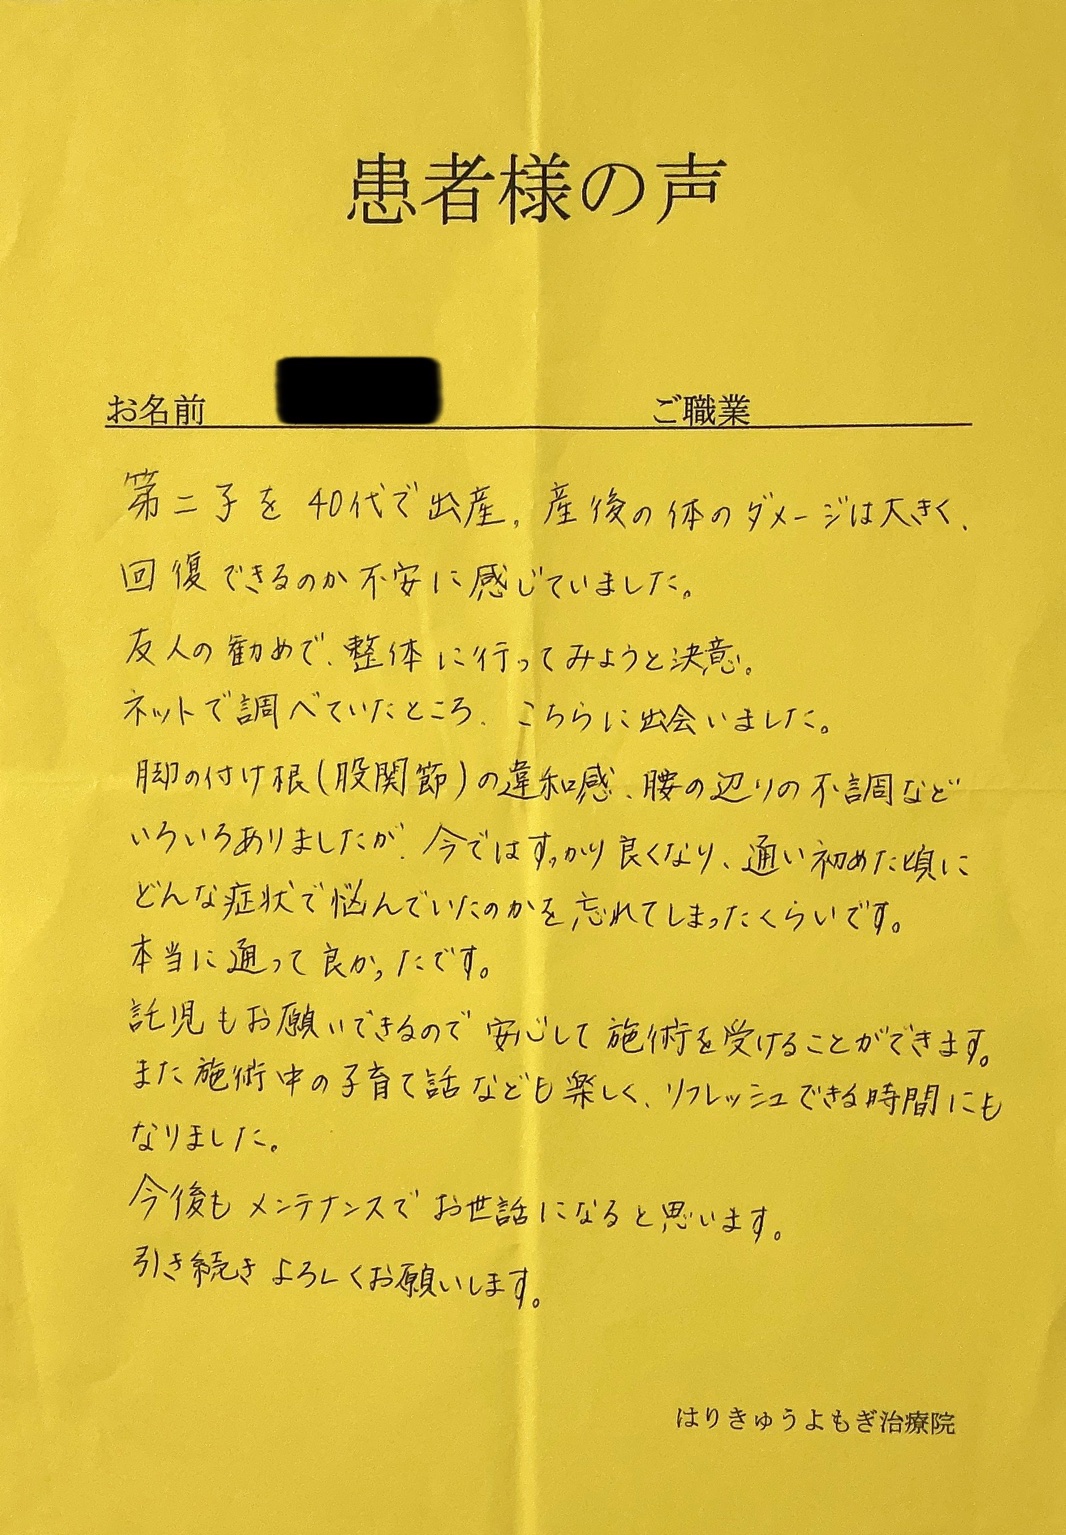 患者様の声
お名前 ご職業
第二子を40代で出産。産後の体のダメージは大きく、
回復できるのか不安に感じていました。
友人の勧めで、整体に行ってみようと決意。
ネットで調べていたところ、こちらに出会いました。
脚の付け根(股関節)の違和感、腰の辺りの不調など
いろいろありましたが、今ではすっかり良くなり、通い初めた頃に
どんな症状で悩んでいたのかを忘れてしまったくらいです。
本当に通って良かったです。
託児もお願いできるので安心して施術を受けることができます。
また施術中の子育て話なども楽しく、リフレッシュできる時間にも
なりました。
今後もメンテナンスでお世話になると思います。
引き続きよろしくお願いします。
はりきゅうよもぎ治療院